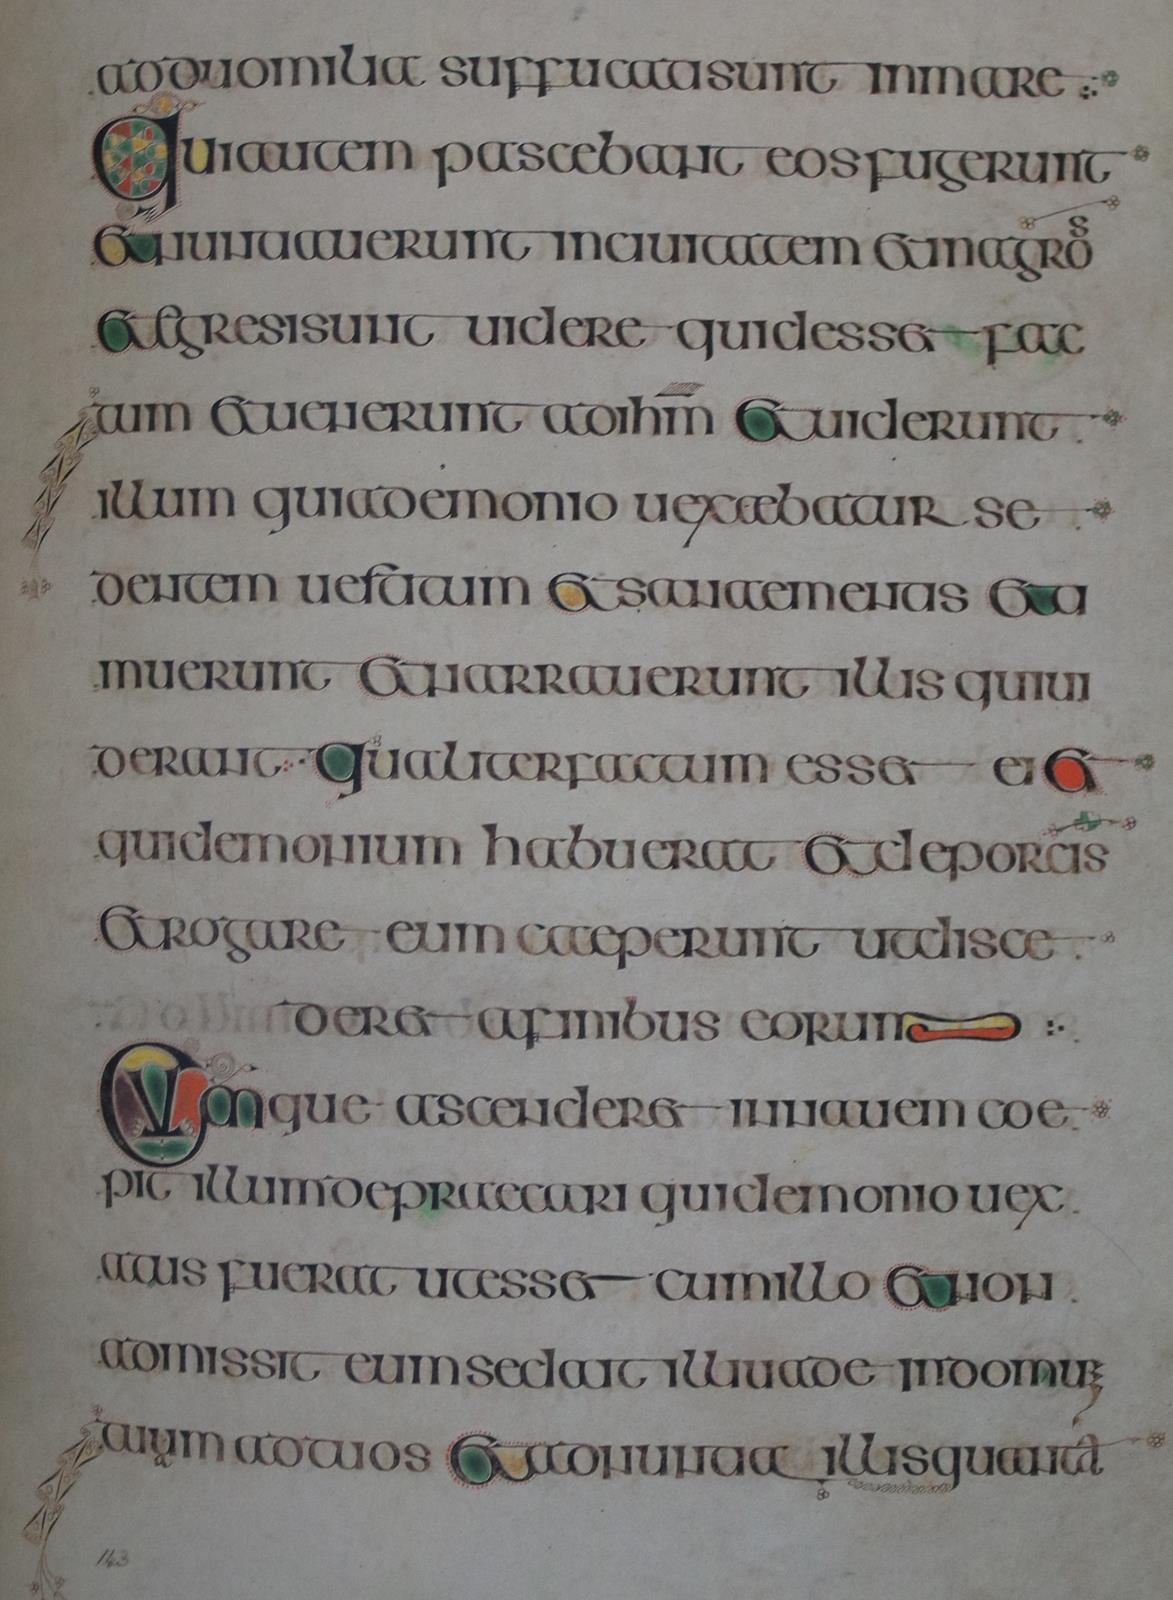 adduomilia suffucatisunt inmare
Quiautem pascebant eosfugerunt
etnuntiauerunt inciuitatem etinagros
etegresisunt uidere quidesset fac
tum etuenerunt adihm etuiderunt
illum quiademonio uexaebatur se
dentem uestitum etsanaementis etti
muerunt etnarrauerunt illis quiui
derant qualiterfactum esset ei et
quidemonium habuerat etdeporcis
etrogare eum caeperunt utdisce
deret afinibus eorum
Cumque ascenderet innauem coe
pit illumdepraecari quidemonio uex
atus fuerat utesset cumillo etnon
admissit eumsedait illiuade indomum
tuum adtuos etadnuntia illisquanta
143